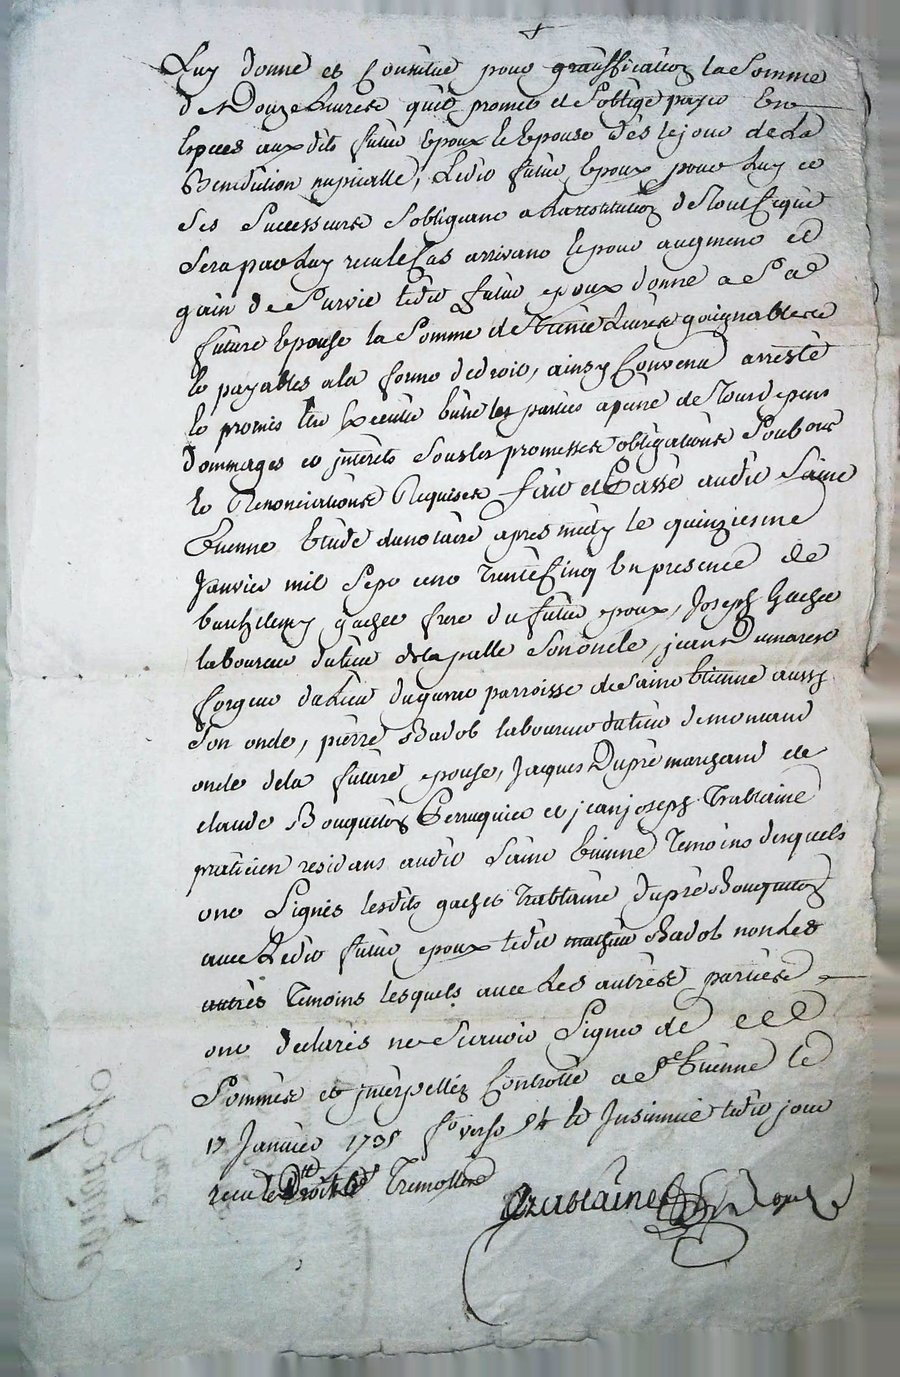 Luy donne et Constitue pour gratiffication la Somme
de Douze Livres quil promet et Soblige payer En
Especes aux dits futur Epoux Et Epouse dès le jour de La
Benediction nuptialle, Ledit futur Epoux pour Luy et
Ses Successeurs Sobligeant a la restitution de Tout Ceque
Sera par Luy receu le Cas arrivant Et pour augment et
gain de Survie ledit futur epoux donne a Sa de
future Epouse la Somme de Trente Livres gaignables
Et payables a la forme de droit, ainsy Convenu arresté
Et promis Executer Entre les parties a peine de Tous depens
dommages et jnterets Sous les promesses obligations Soubmis
Et Renonciations Requises fait et Passé audit Saint
Etienne Etude du notaire apres midy le quinziesme
Janvier mil Sept cent Trente Cinq En presence de
barthelemy gachet frere du futur epoux, Joseph Gachet
laboureur du lieu de la Son oncle, jean Damarest
forgeur du Lieu parroisse de Saint Etienne aussy
Son oncle, pierre Badol laboureur du lieu de
oncle de la future epouse, Jaques Dupré marchand et
claude Bouqueton Perruquier et jean joseph Trablaine
praticien residans audit Saint Etienne Temoins desquels
ont Signés lesdits gachet Trablaine dupré Bouqueton
avec Ledit futur epoux ledit mathieu Badol non Les
autres Temoins lesquels avec Les autres parties
ont declarés ne Scavoir Signer de ce
Sommés et jnterpellés Controllé a St Etienne le
17 Janvier 1735 fo verso 54 et Insinué ledit jour
receu le Droit Tremollet
Trablaine